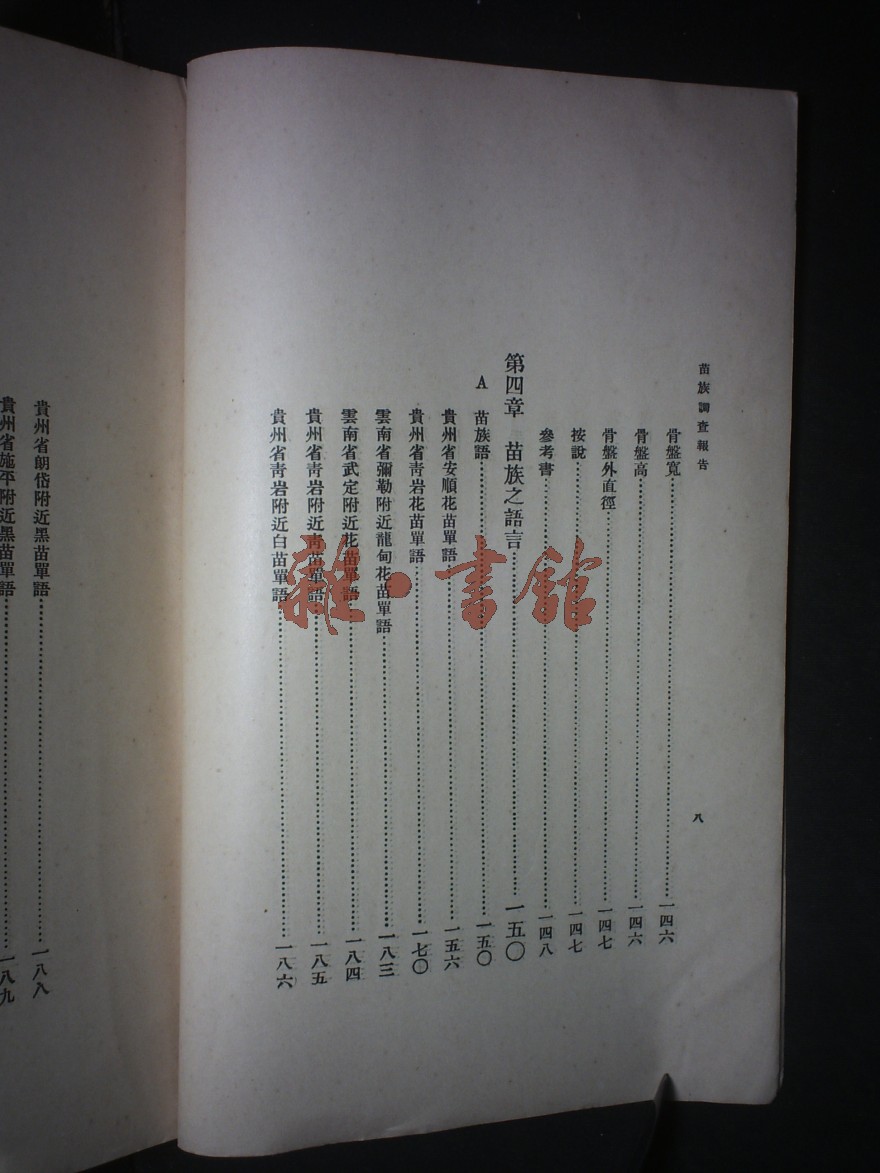 苗族調查報告
八
骨盤寬 一四六
骨盤高 一四六
骨盤外直徑 一四七
按說 一四七
參考書 一四八
第四章 苗族之語言 一五〇
A 苗族語 一五〇
貴州省安順花苗單語 一五六
貴州省靑岩花苗單語 一七〇
雲南省彌勒附近龍甸花苗單語 一八三
雲南省武定附近花苗單語 一八四
貴州省靑岩附近靑苗單語 一八五
貴州省靑岩附近白苗單語 一八六
貴州省朗岱附近黑苗單語 一八八
貴州省施平附近黑苗單語 一八九
雜·書館